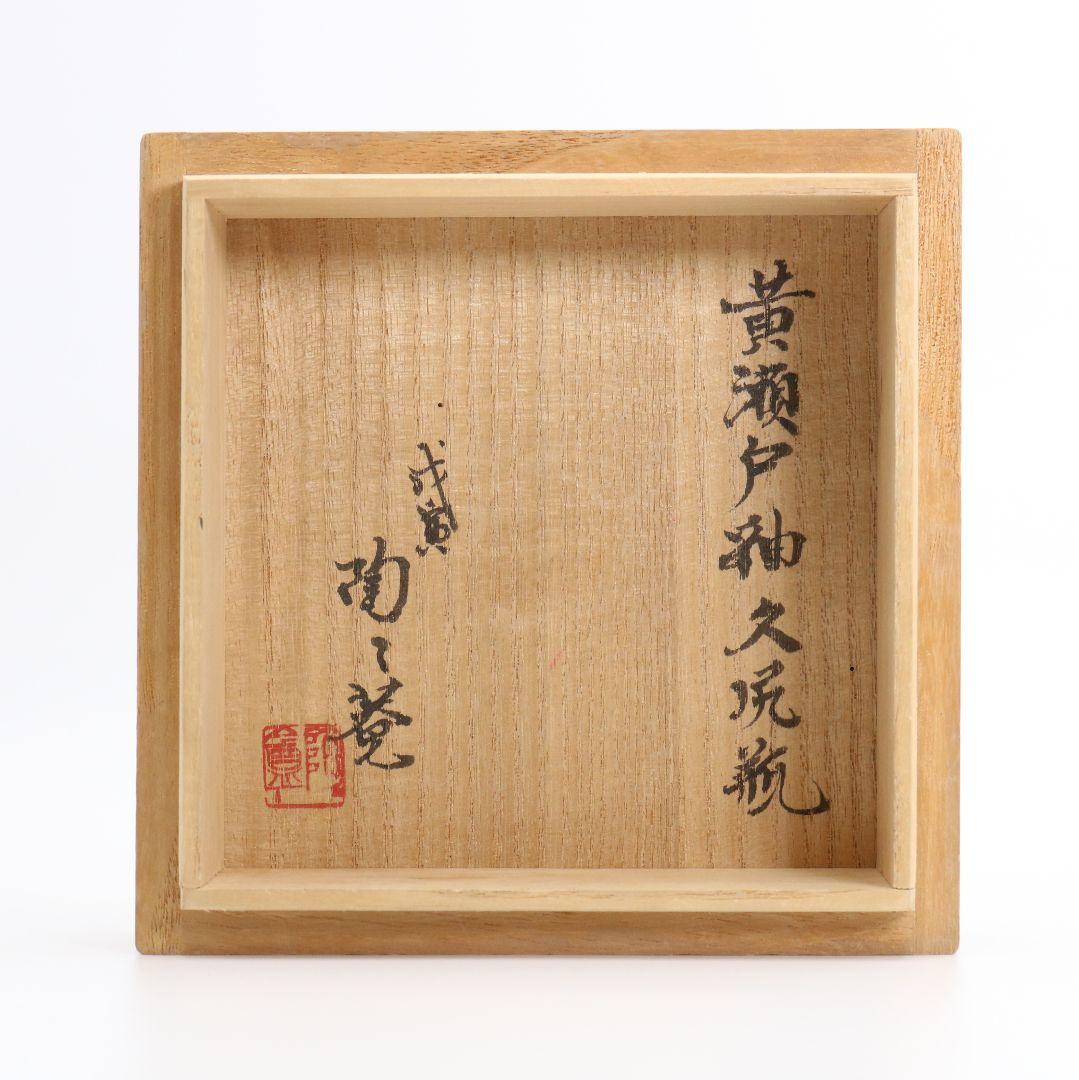 黄瀬戸釉久尻瓶
戊寅
陶々菴